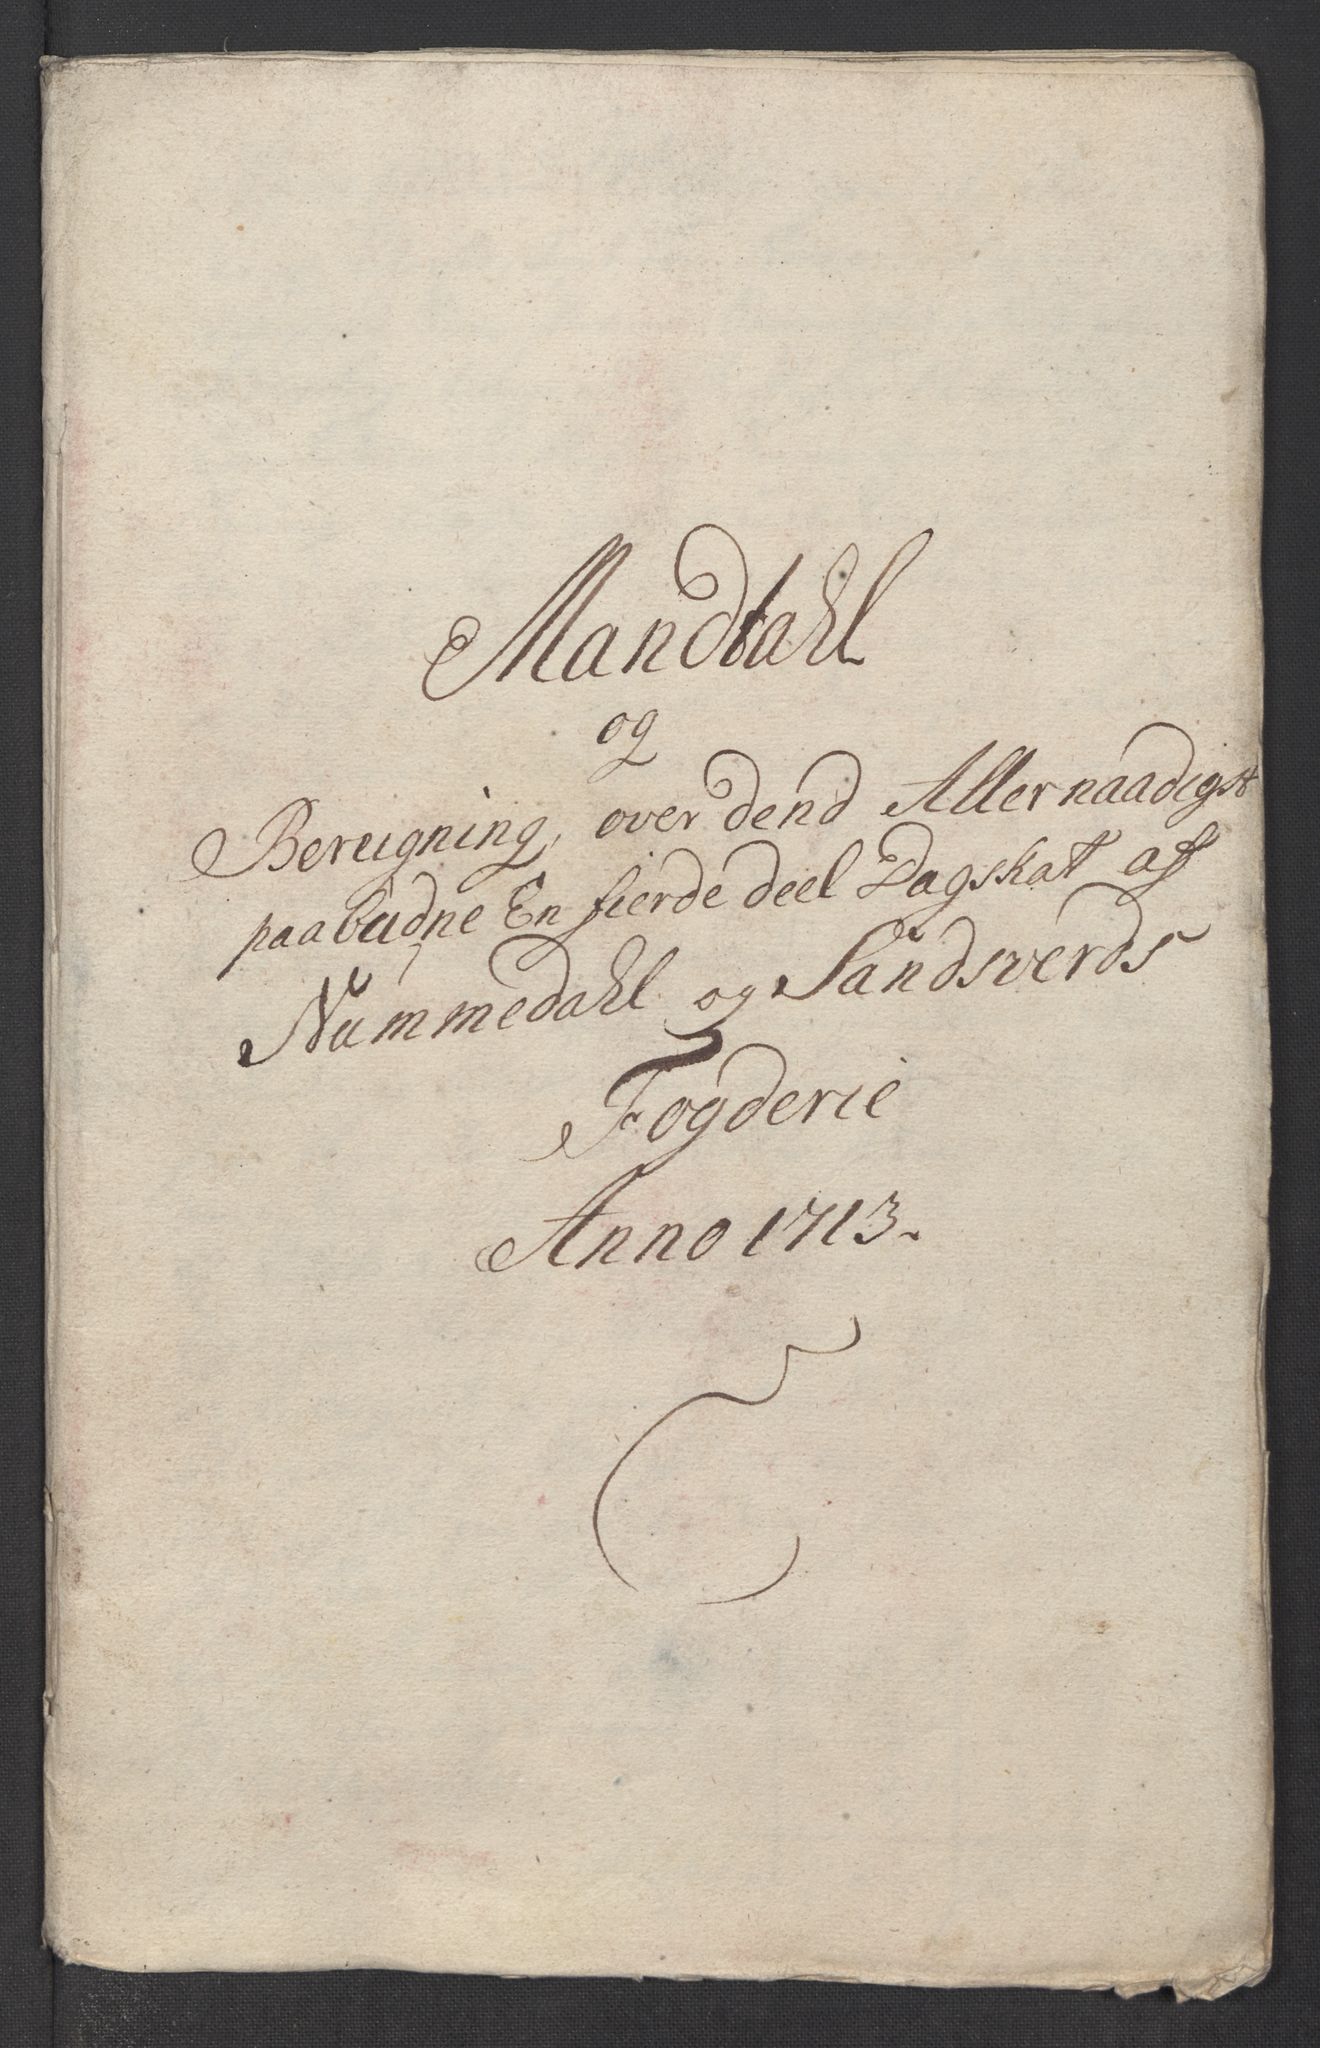 Mandtahl
og
Bereigning, over dend Allernaadigst
paabudne En fierde deel Dagskat af
Nummedahl og Sandsverds
Fogderie
Anno 1713.